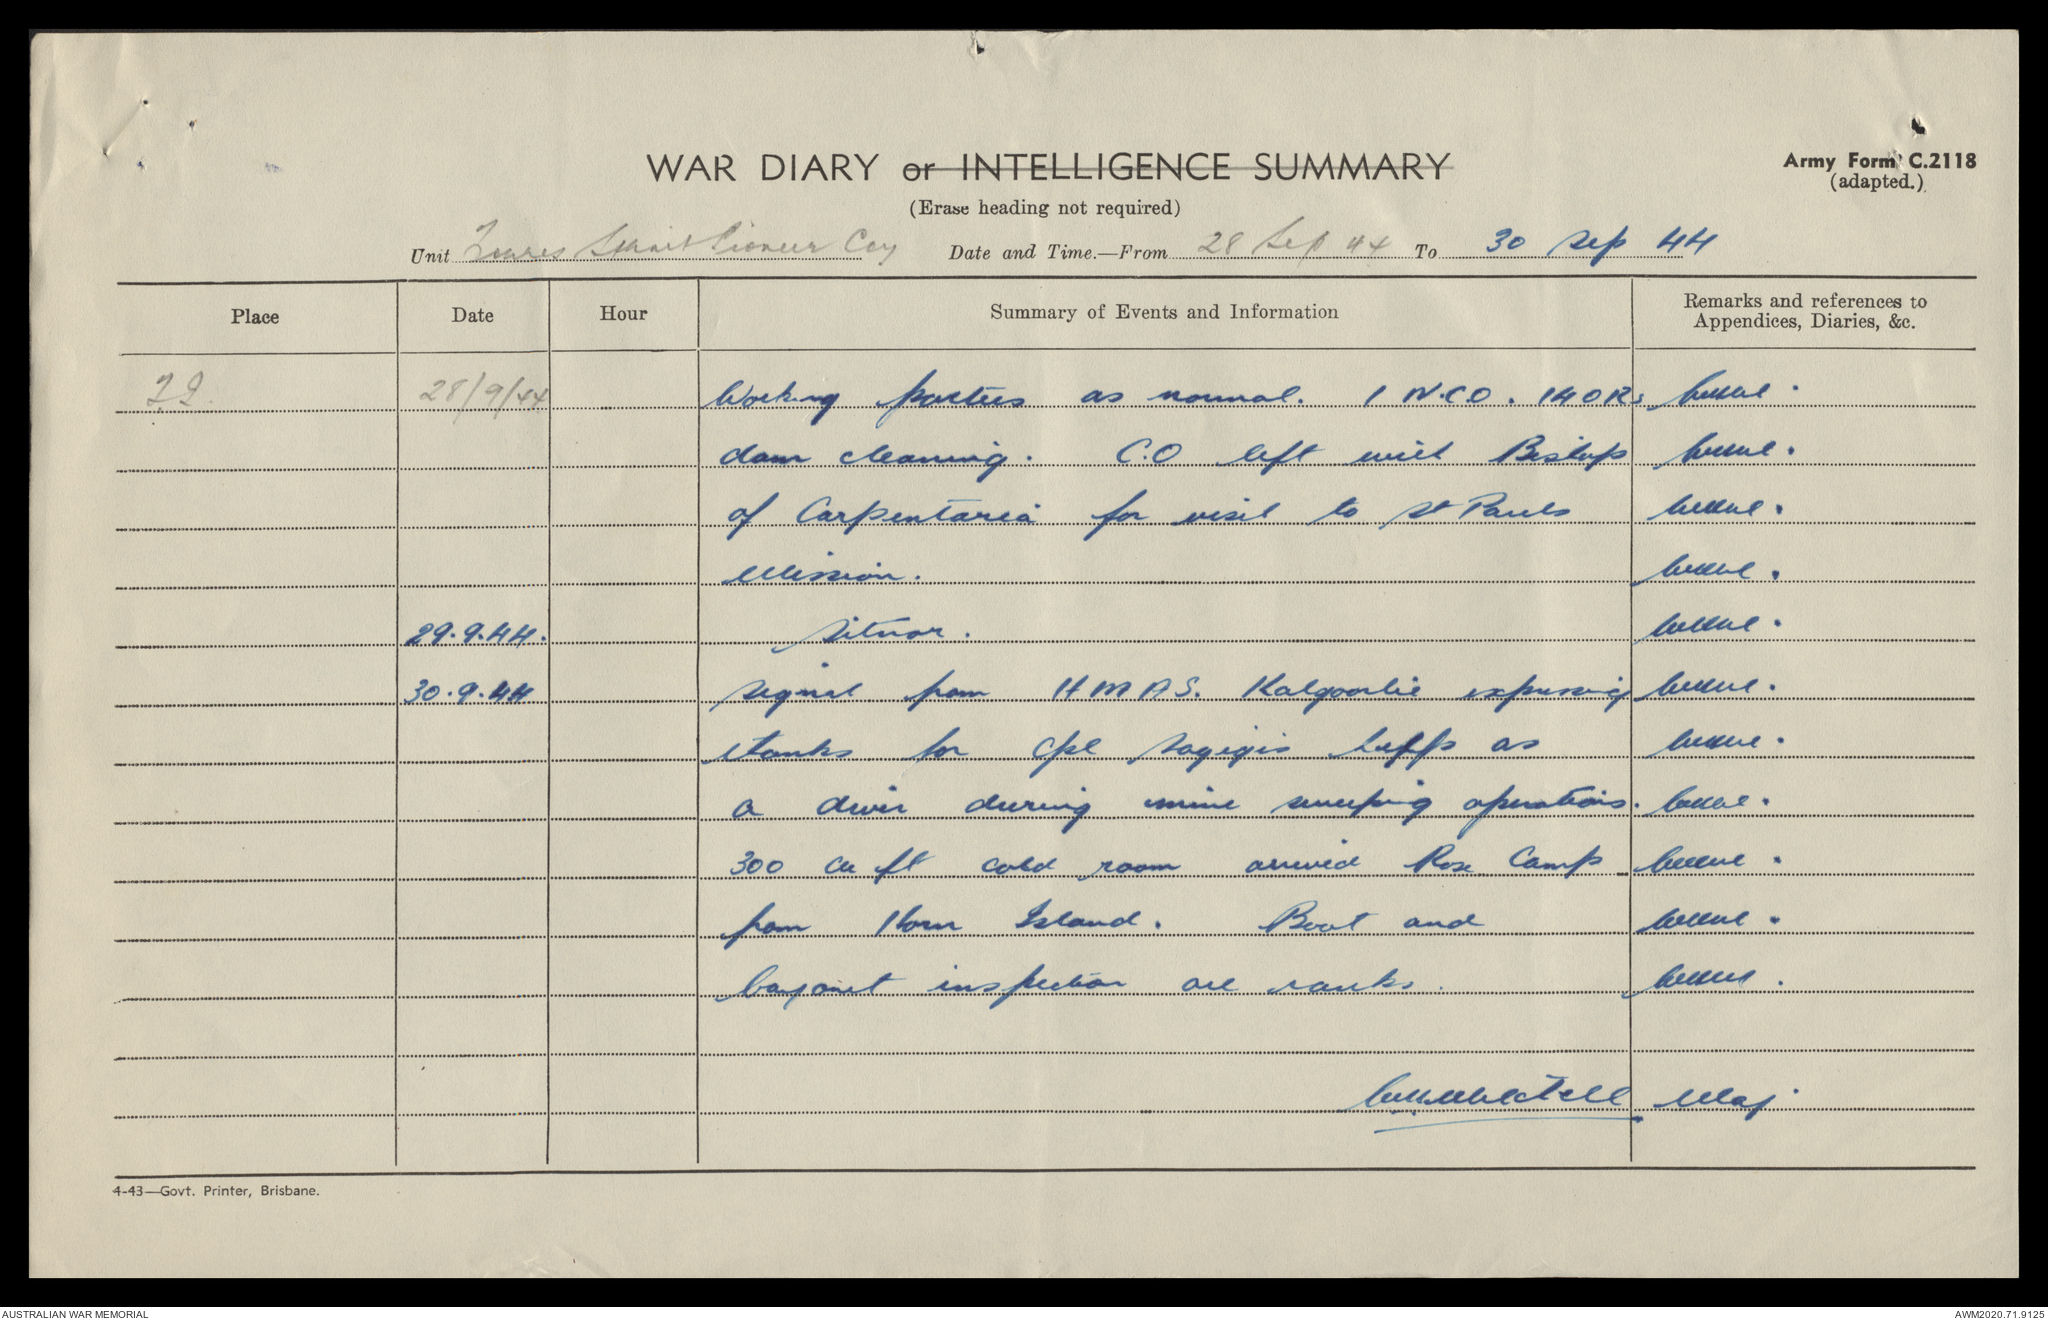 WAR DIARY or INTELLIGENCE SUMMARY
Army Form C.2118
(adapted.)
(Erase heading not required)
Unit Torres Strait Pioneer Coy Date and Time.—From 28 Sep 44 To 30 Sep 44
Place Date Hour Summary of Events and Information Remarks and references to
Appendices, Diaries, &c.
T.I. 28/9/44 Working parties as normal. 1 N.C.O. 14 ORs
dam cleaning. C.O left with Bishop
of Carpentaria for visit to St Pauls
Mission.
29.9.44. Sitnor.
30.9.44 Signal from HMAS. Kalgoorlie expressing
thanks for Cpl Sagigis help as
a diver during mine sweeping operations.
300 cu ft cold room arrived Rose Camp
from Horn Island. Boot and
bayonet inspection all ranks.
Maj
4-43—Govt. Printer, Brisbane.
AUSTRALIAN WAR MEMORIAL
AWM2020.71.9125